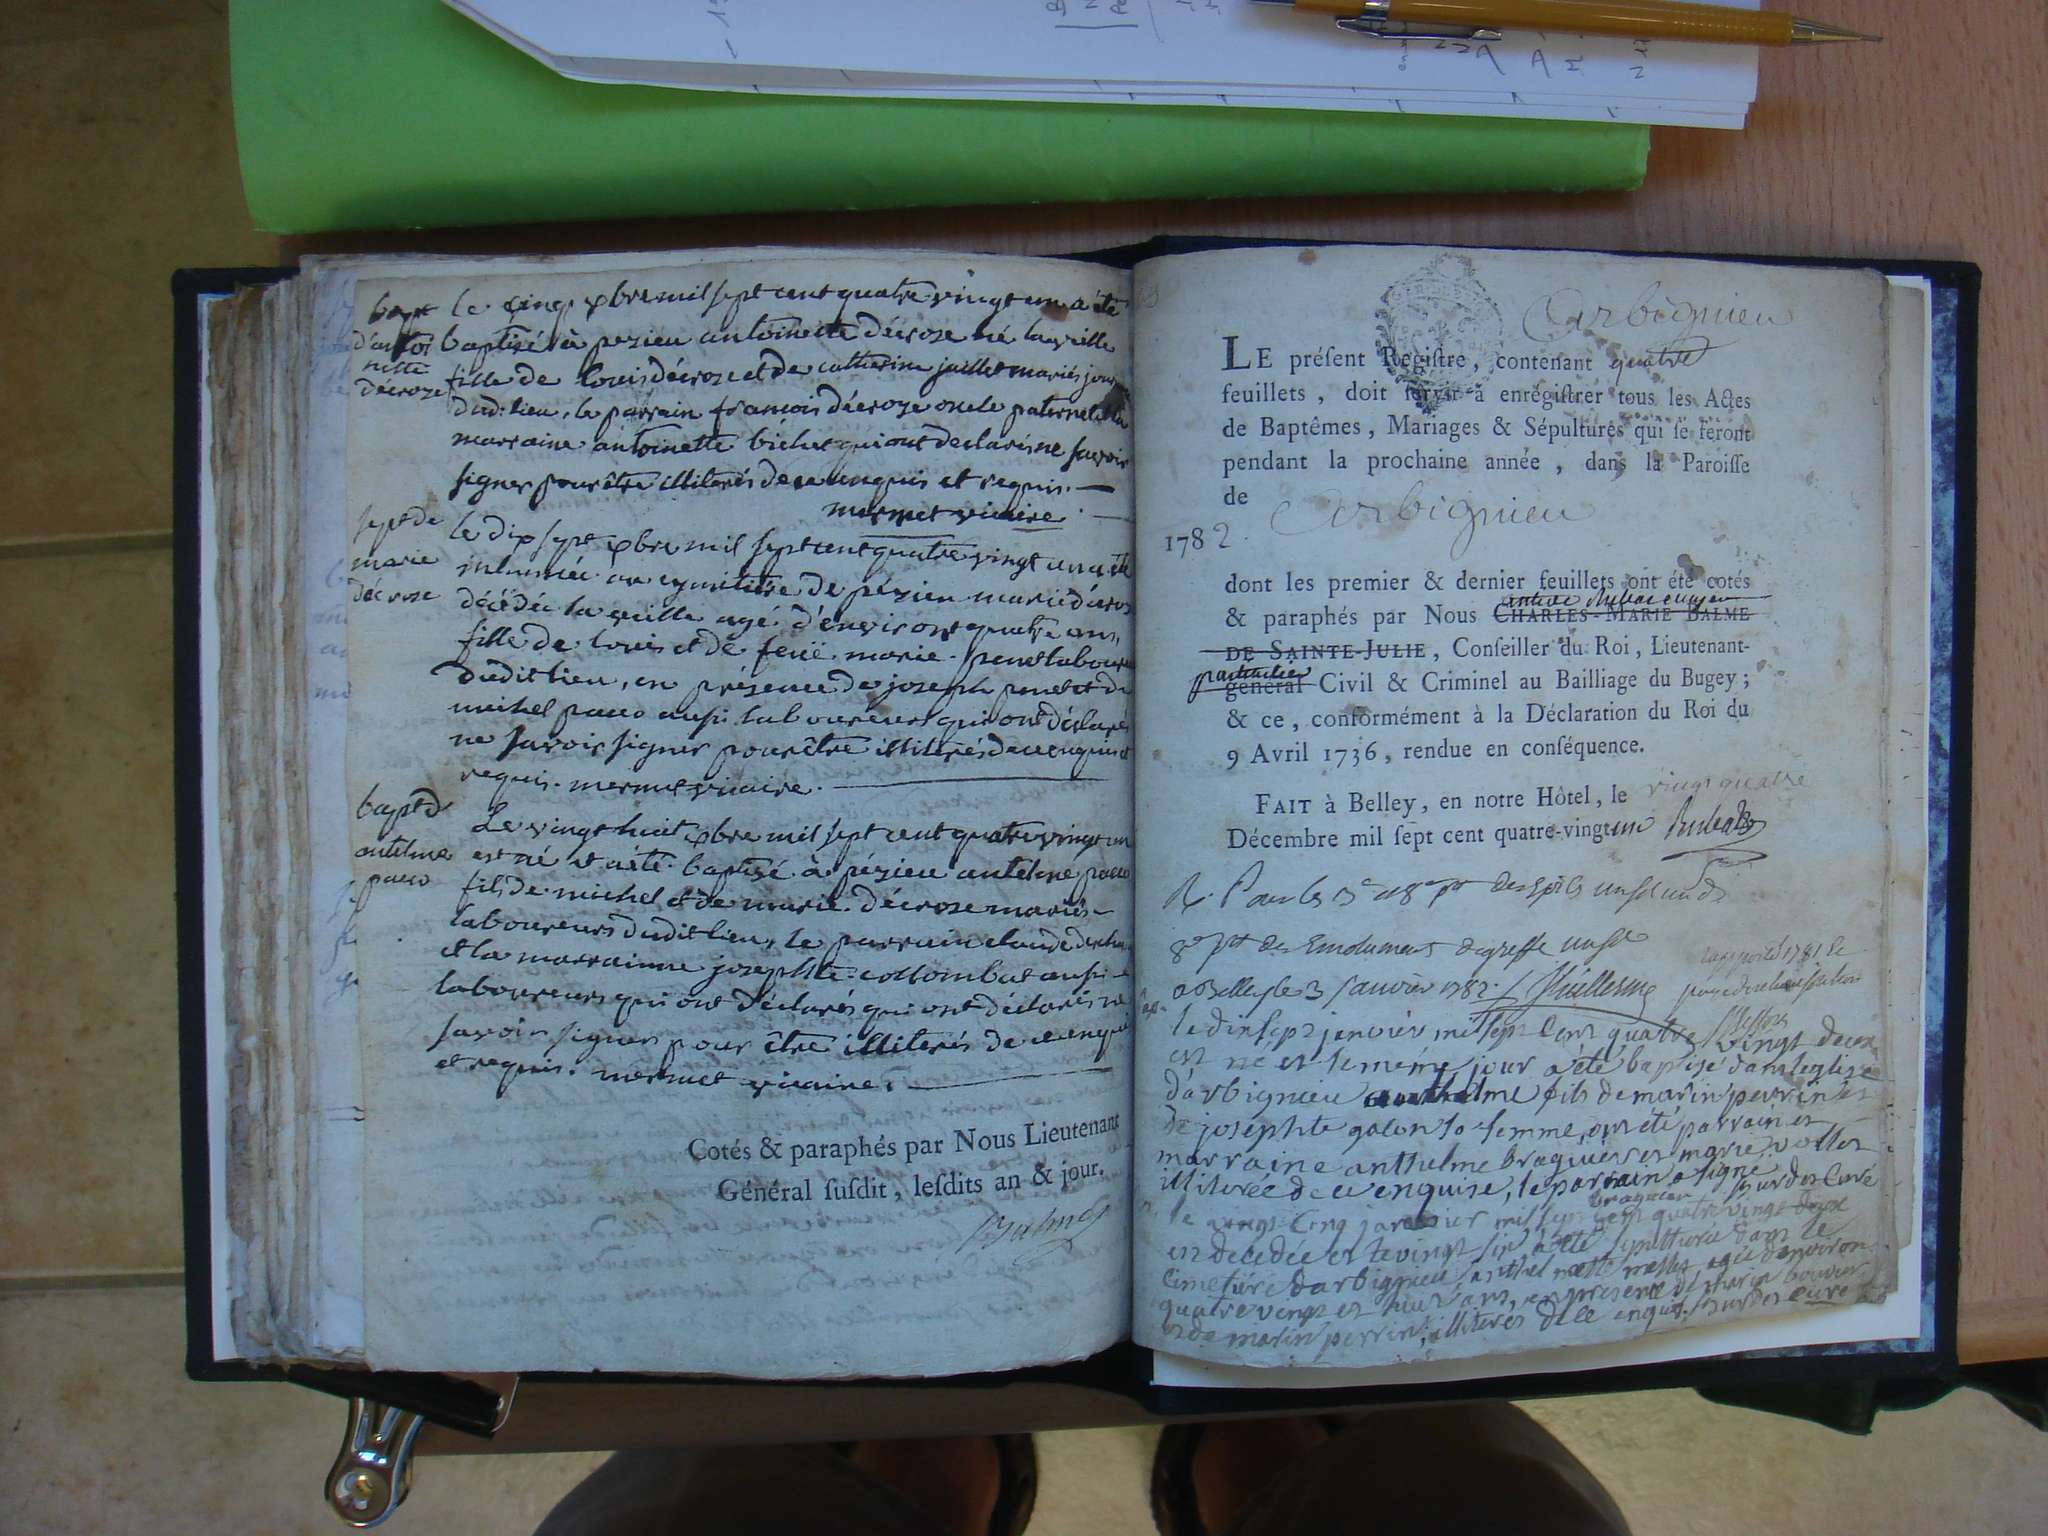 bapt
d'antoi
nette
décroze
le cinq xbre mil sept cent quatre vingt un a été
baptisé à pezieu antoinette décroze né la veille
fille de louis décroze et de catherine juillet mariés jour
dud: lieu, le parrain françois décroze oncle paternel la
marraine antoinette bichet qui ont déclarés ne savoir
signer pour être illiterés de ce enquis et requis.
mermet vicaire.
sept de
marie
décroze
le dix sept xbre mil sept cent quatre vingt un a été
inhumée au cymitière de pézieu marie décroz
décédée la veille agé d'environt quatre ans,
fille de louis et de feüe marie penet laboureur
dudit lieu, en présence de joseph penet et de
michel puco aussi laboureurs qui ont déclarés
ne savoir signer pour être illiterés de ce enquis et
requis. mermet vicaire.
bapt d
antelme
puco
Le vingt huit xbre mil sept cent quatre vingt un
est né et a été baptisé à pézieu antelme puco
fils de michel et de marie décroze mariés
laboureurs dudit lieu, le parrain claude
et la marrainne josephte collombet aussi
laboureurs qui ont déclarés qui ont déclarés ne
savoir signer pour être illiterés de ce enquis
et requis. mermet vicaire.
Cotés & paraphés par Nous Lieutenant
Général ſuſdit, leſdits an & jour.
Arbignieu
LE préſent Regiſtre, contenant quatre
feuillets, doit ſervir à enrégiſtrer tous les Actes
de Baptêmes, Mariages & Sépultures qui ſe feront
pendant la prochaine année, dans la Paroiſſe
de Arbignieu
1782.
dont les premier & dernier feuillets ont été cotés
& paraphés par Nous CHARLES-MARIE BALME
DE SAINTE-JULIE, Conſeiller du Roi, Lieutenant-
particulier
général Civil & Criminel au Bailliage du Bugey;
& ce, conformément à la Déclaration du Roi du
9 Avril 1736, rendue en conſéquence.
FAIT à Belley, en notre Hôtel, le vingt quatre
Décembre mil ſept cent quatre-vingt un
a Belley le 3 Janvier 1782.
le dix sept janvier mil sept cent quatre vingt deux
est né et le même jour a été baptisé dans l'eglise
d'arbignieu anthelme fils de marin perrin et
de josephte galon sa femme, ont été parrain et
marraine anthelme braguier et marie vollet
illiterée de ce enquise, le parrain a signé
le vingt cinq janvier mil sept cent quatre vingt deux
est decedée et le vingt six a été
cimetiére d'arbignieu agée d'environ
quatre vingt et huit ans, en presence de marin bouvier
et de marin perrin, illiterés de ce enquis. curé